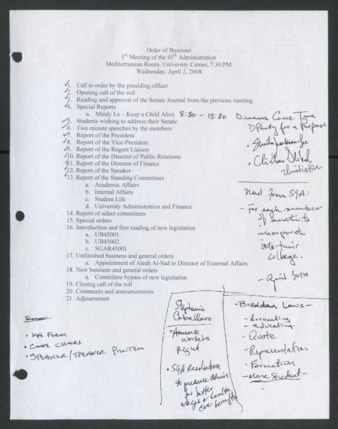 Order of Business
1st Meeting of the 45th Administration
Mediterranean Room, University Center, 7:30 PM
Wednesday, April 2, 2008
1. Call to order by the presiding officer
2. Opening call of the roll
3. Reading and approval of the Senate Journal from the previous meeting
4. Special Reports
a. Mindy Le - Keep a Child Alive 8:30 -
5. Students wishing to address their Senate
6. Two minute speeches by the members
7. Report of the President
8. Report of the Vice-President
9. Report of the Regent Liaison
10. Report of the Director of Public Relations
11. Report of the Director of Finance
12. Report of the Speaker
13. Report of the Standing Committees
a. Academic Affairs
b. Internal Affairs
c. Student Life
d. University Administration and Finance
14. Report of select committees
15. Special orders
16. Introduction and first reading of new legislation
a. UB45001
b. UB45002
c. SGAR45001
17. Unfinished business and general orders
a. Appointment of Aleah Al-Sad to Director of External Affairs
18. New business and general orders
a. Committee bypass of new legislation
19. Closing call of the roll
20. Comments and announcements
21. Adjournment
Dreams Come True
Party for a Purpose
Need from SGA:
- For each member
of senate to
incorporate
into their
college.
- April 30th
Stephanie
Caballero
• Amount
workers
Right
• SGA Resolution
to pressure admin
for better
wages
• Brendan Laws -
- Accounting
- Quote
- Representation
- Formation
- More Student -